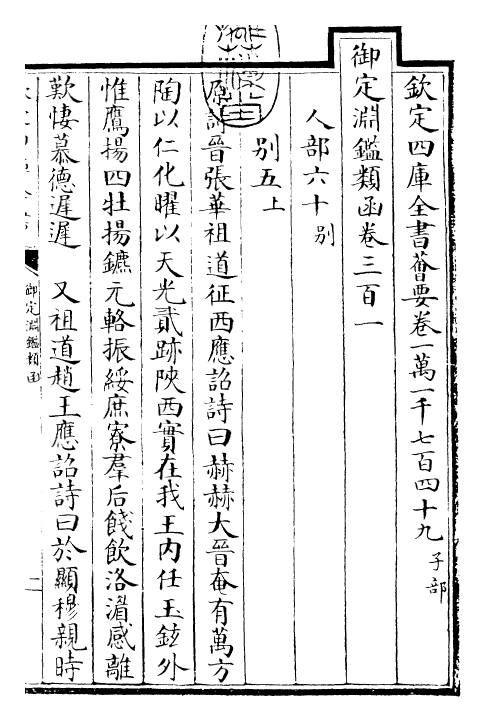 欽定四庫全書薈要卷一萬一千七百四十九 子部
御定淵鑑類函卷三百一
人部六十 別
別五上
原詩晉張華祖道征西應詔詩曰赫赫大晉奄有萬方
陶以仁化曜以天光貳跡陝西實在我王內任玉鉉外
惟鷹揚四牡揚鑣元輅振綏庶寮羣后餞飲洛湄感離
歎悽慕德遲遲 又祖道趙王應詔詩曰於顯穆親時
御定淵鑑類函